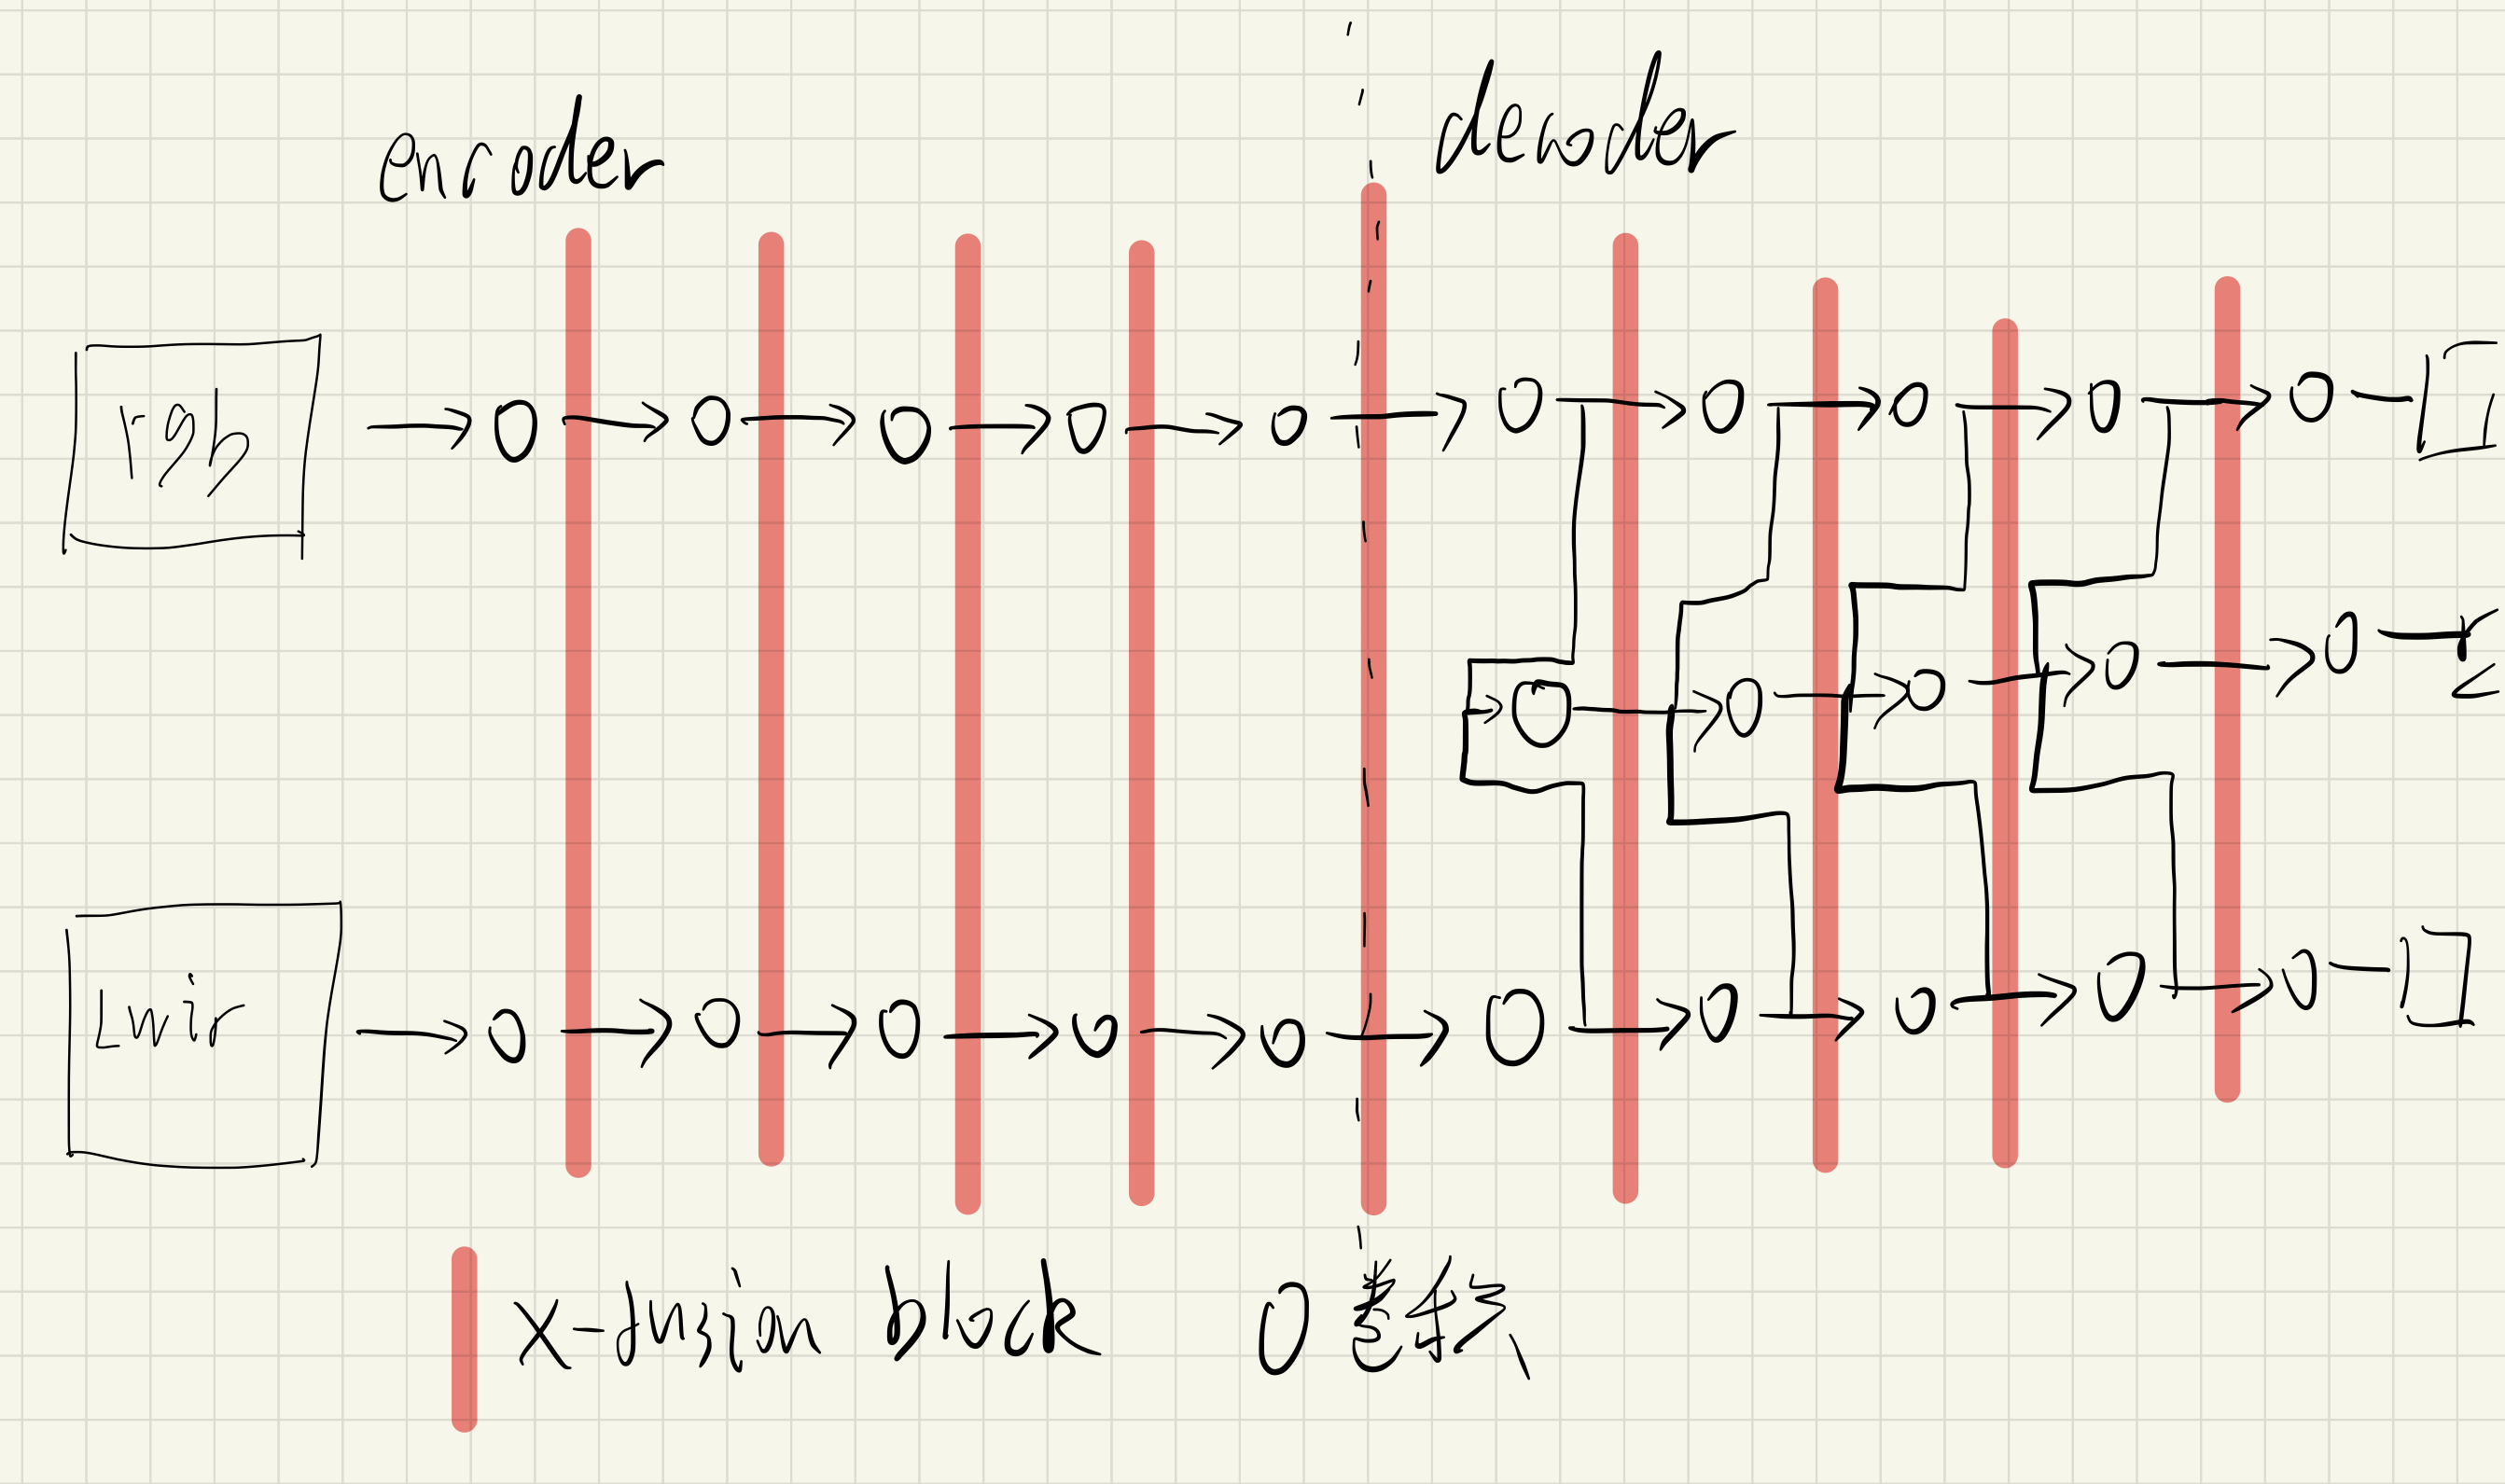 encoder
decoder
rgb
Lwir
x-fusion block
卷积